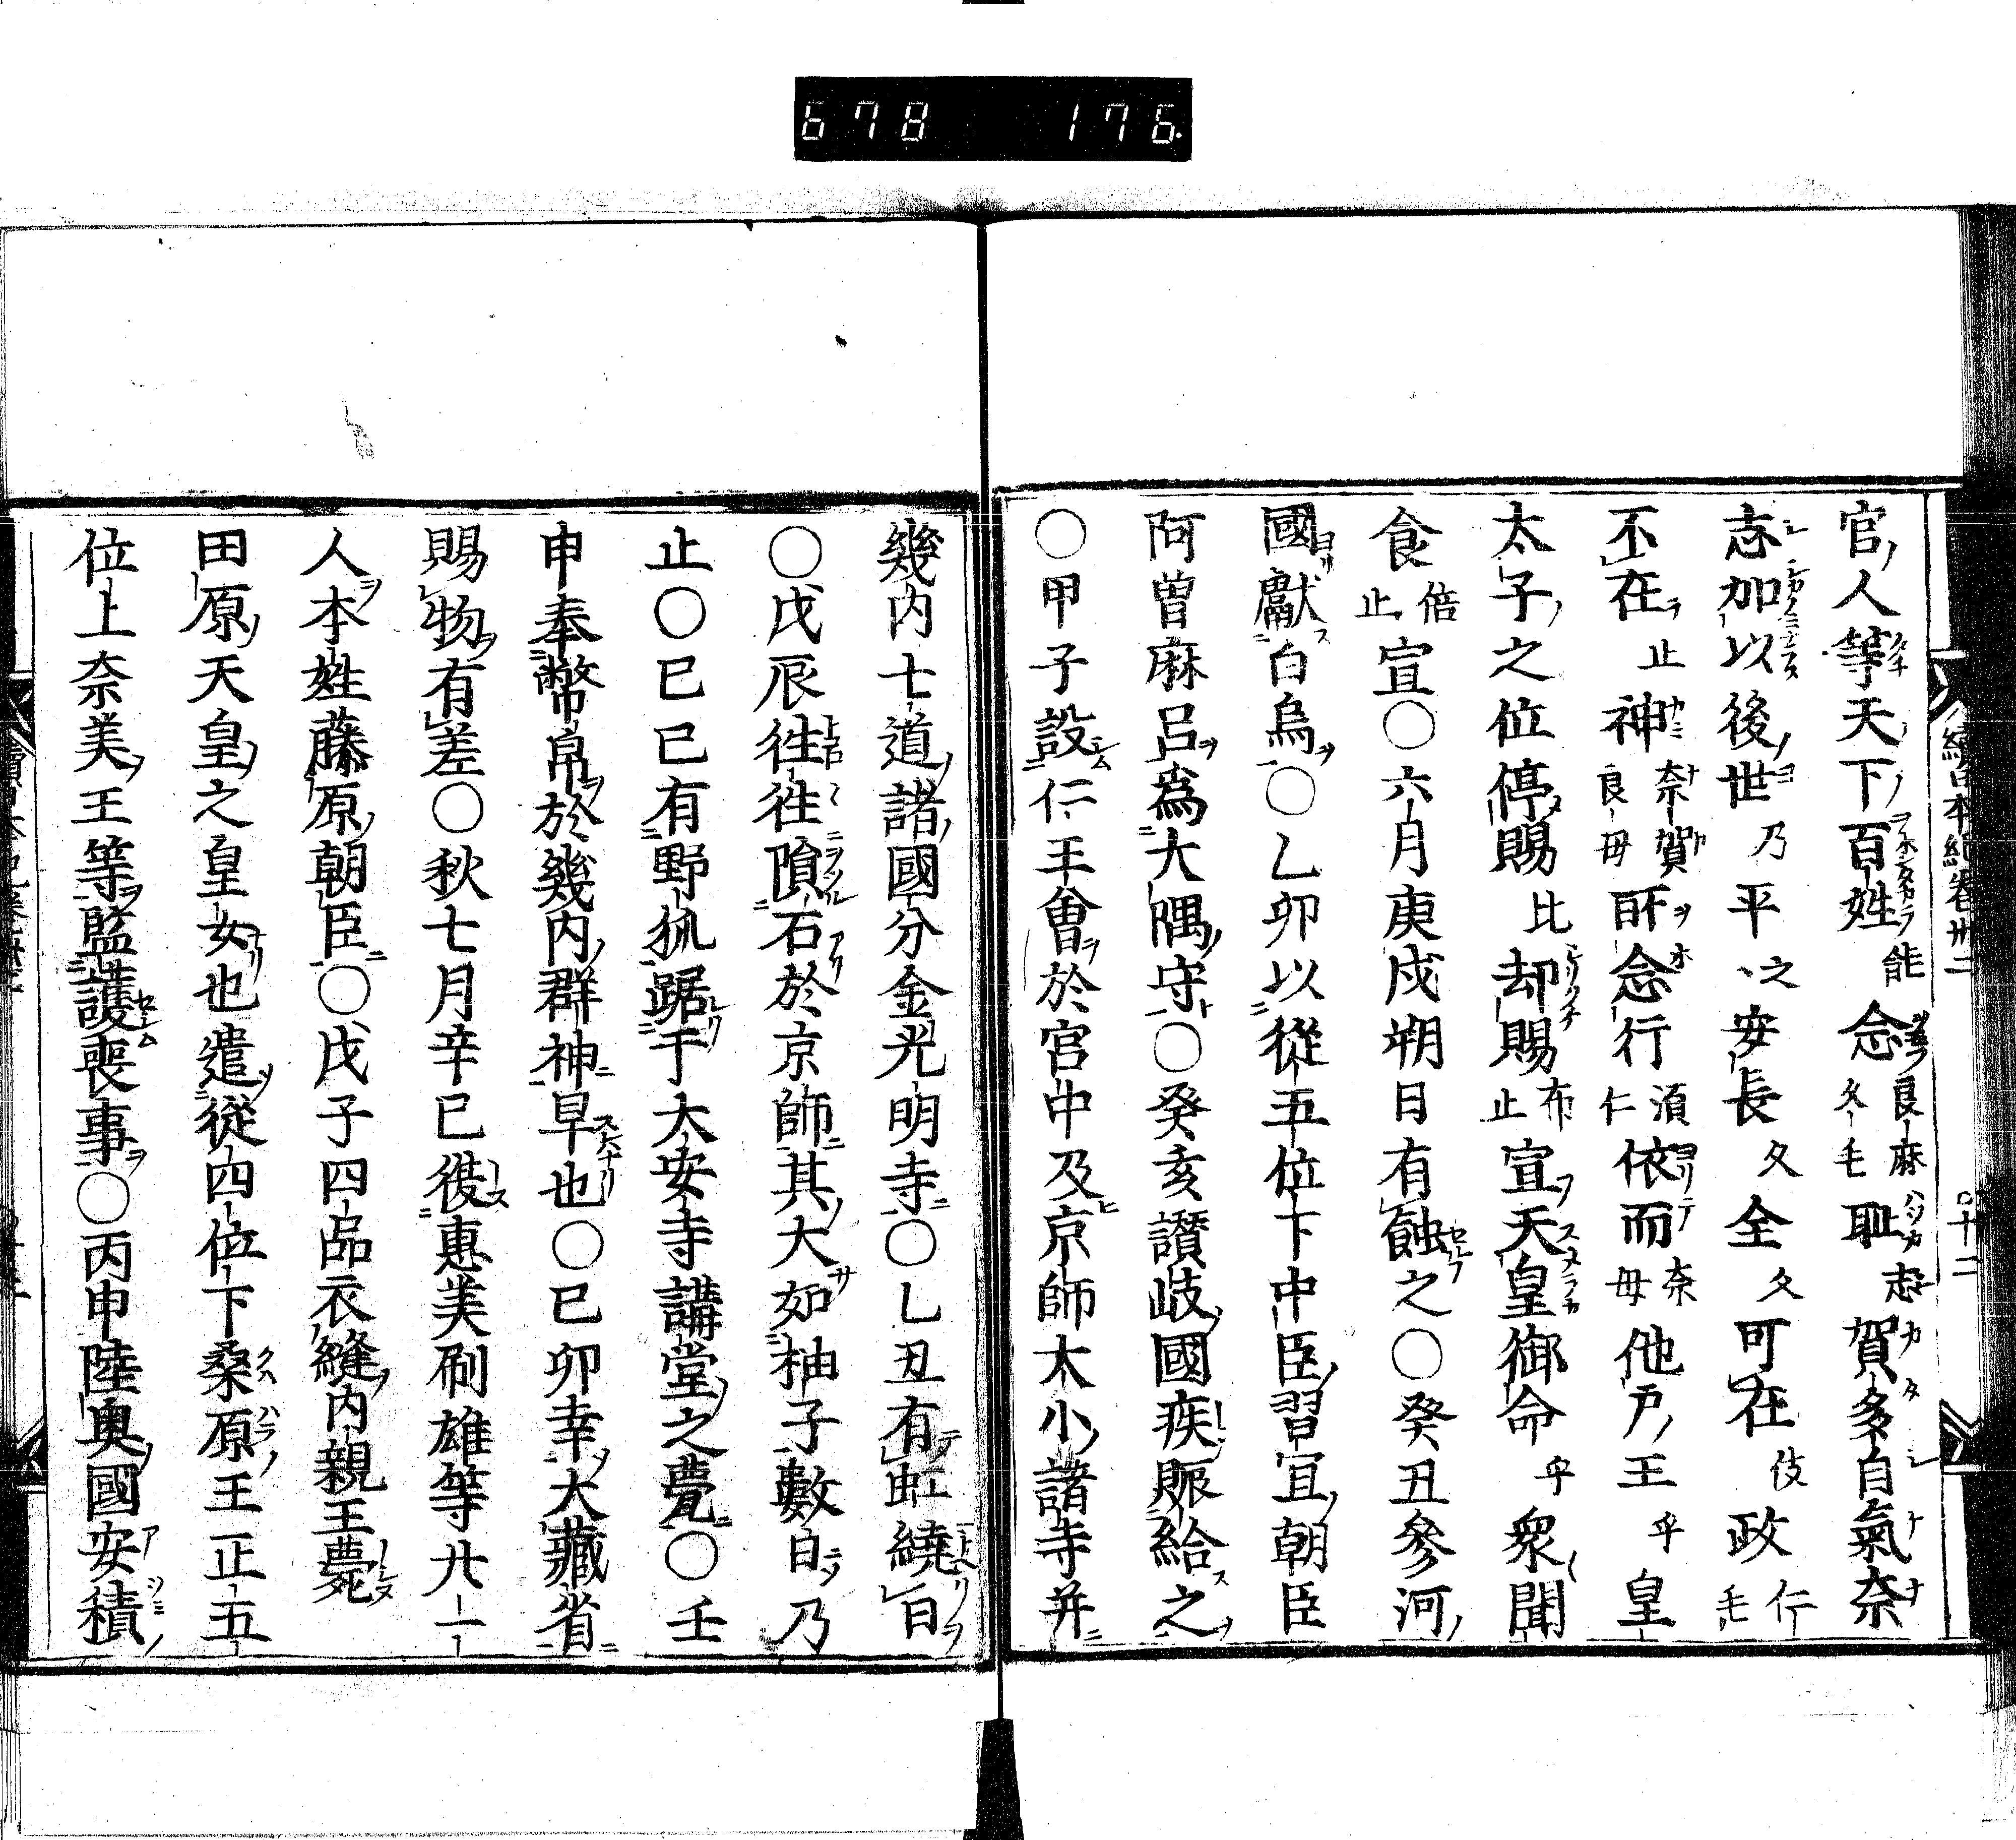 678 176.
續日本紀卷卅二
官人等天下百姓能念良麻久毛恥志賀多自氣奈
志加以後世乃平之安長久全久可在伎政仁毛
不在止神奈賀良毋所念行須仁依而奈毋他戸王乎皇
太子之位停賜比却賜布止宣天皇御命乎衆聞
食倍止宣〇六月庚戌朔日有蝕之〇癸丑參河
國獻白烏〇乙卯以從五位下中臣習宜朝臣
阿曾麻呂爲大隅守〇癸亥讚岐國疾賑給之
〇甲子設仁王會於宮中及京師大小諸寺并
幾内七道諸國分金光明寺〇乙丑有虹繞日
〇戊辰徃徃隕石於京師其大如柚子數日乃
止〇己巳有野狐踞于大安寺講堂之甍〇壬
申奉幣帛於幾内群神旱也〇己卯幸大藏省
賜物有差〇秋七月辛巳復惠美刷雄等廿一
人本姓藤原朝臣〇戊子四品衣縫内親王薨
田原天皇之皇女也遣從四位下桑原王正五
位上奈美王等監護喪事〇丙申陸奥國安積